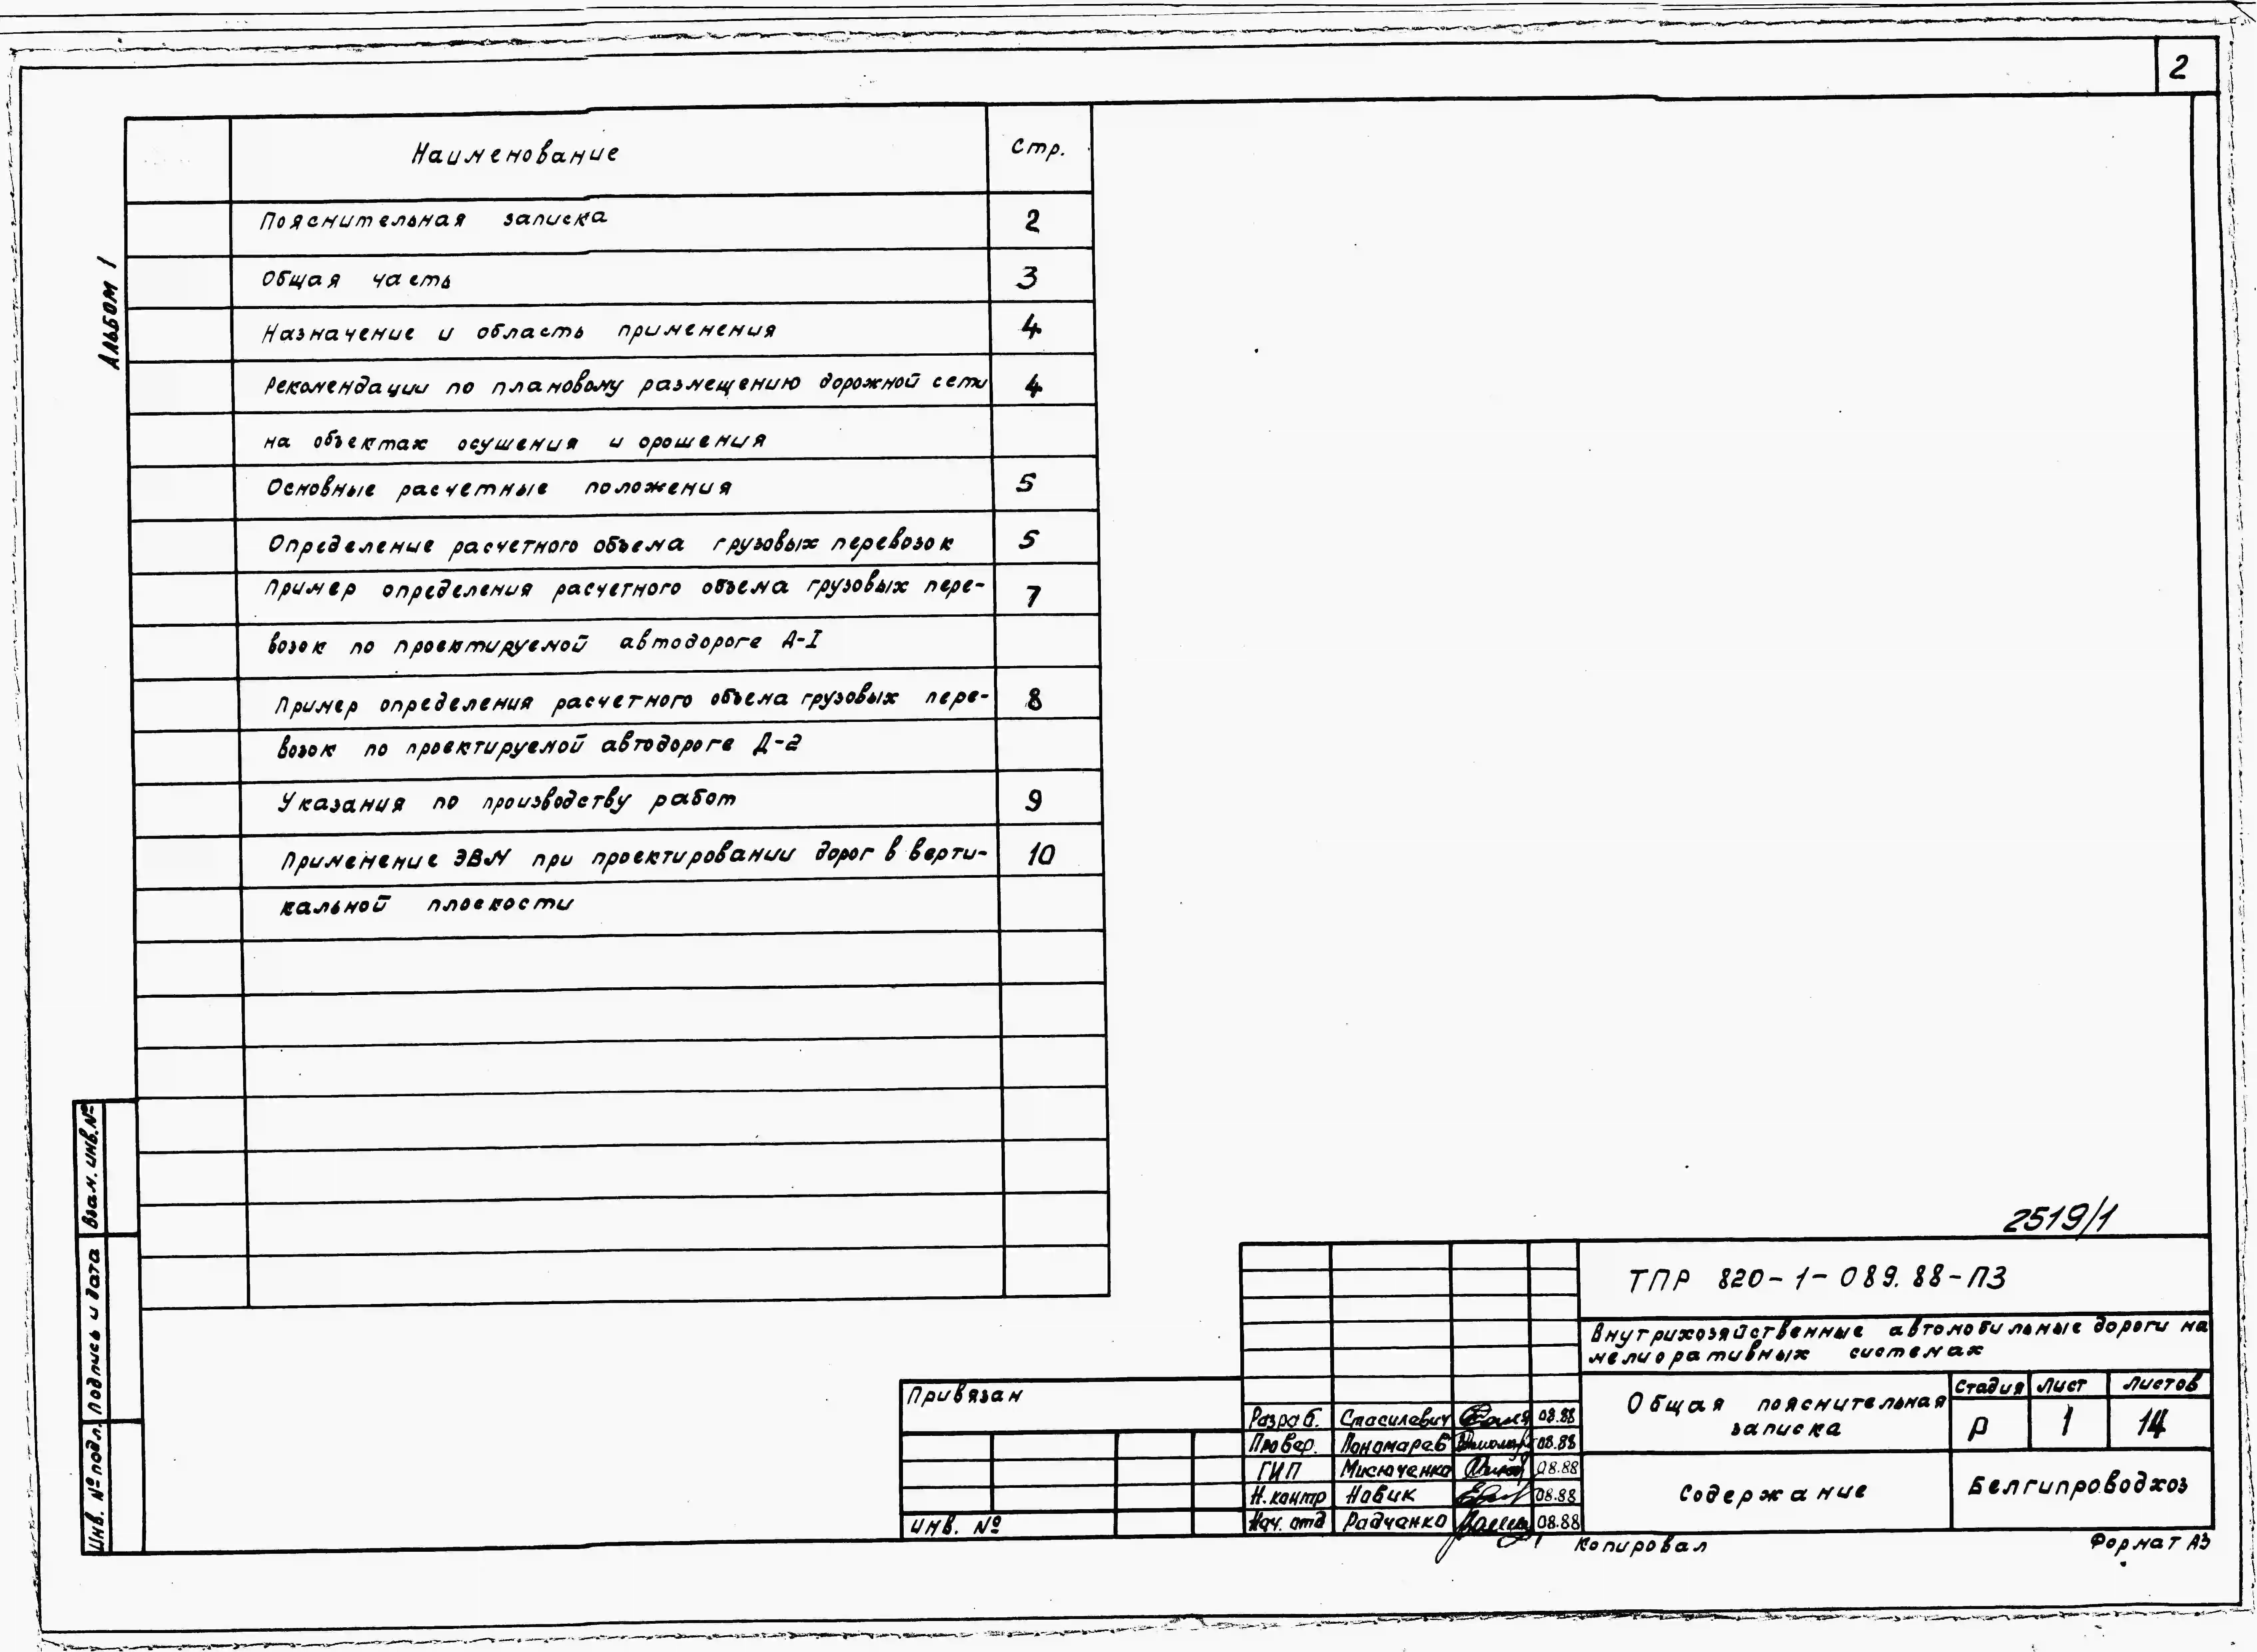 2
Альбом 1
Наименование Стр.
Пояснительная записка 2
Общая часть 3
Назначение и область применения 4
Рекомендации по плановому размещению дорожной сети 4
на объектах осушения и орошения
Основные расчетные положения 5
Определение расчетного объема грузовых перевозок 5
Пример определения расчетного объема грузовых пере- 7
возок по проектируемой автодороге Д-I
Пример определения расчетного объема грузовых пере- 8
возок по проектируемой автодороге Д-2
Указания по производству работ 9
Применение ЭВМ при проектировании дорог в верти- 10
кальной плоскости
Взам. инв. №
Подпись и дата
Инв. № подл.
2519/1
ТПР 820-1-089.88-ПЗ
Внутрихозяйственные автомобильные дороги на
мелиоративных системах
Привязан
Инв. №
Разраб. Стасилевич 08.88
Провер. Пономарев 08.88
ГИП Мисюченко 08.88
Н.контр Новик 08.88
Нач. отд Радченко 08.88
Общая пояснительная
записка
Стадия Лист Листов
Р 1 14
Содержание
Белгипроводхоз
Копировал
Формат А3